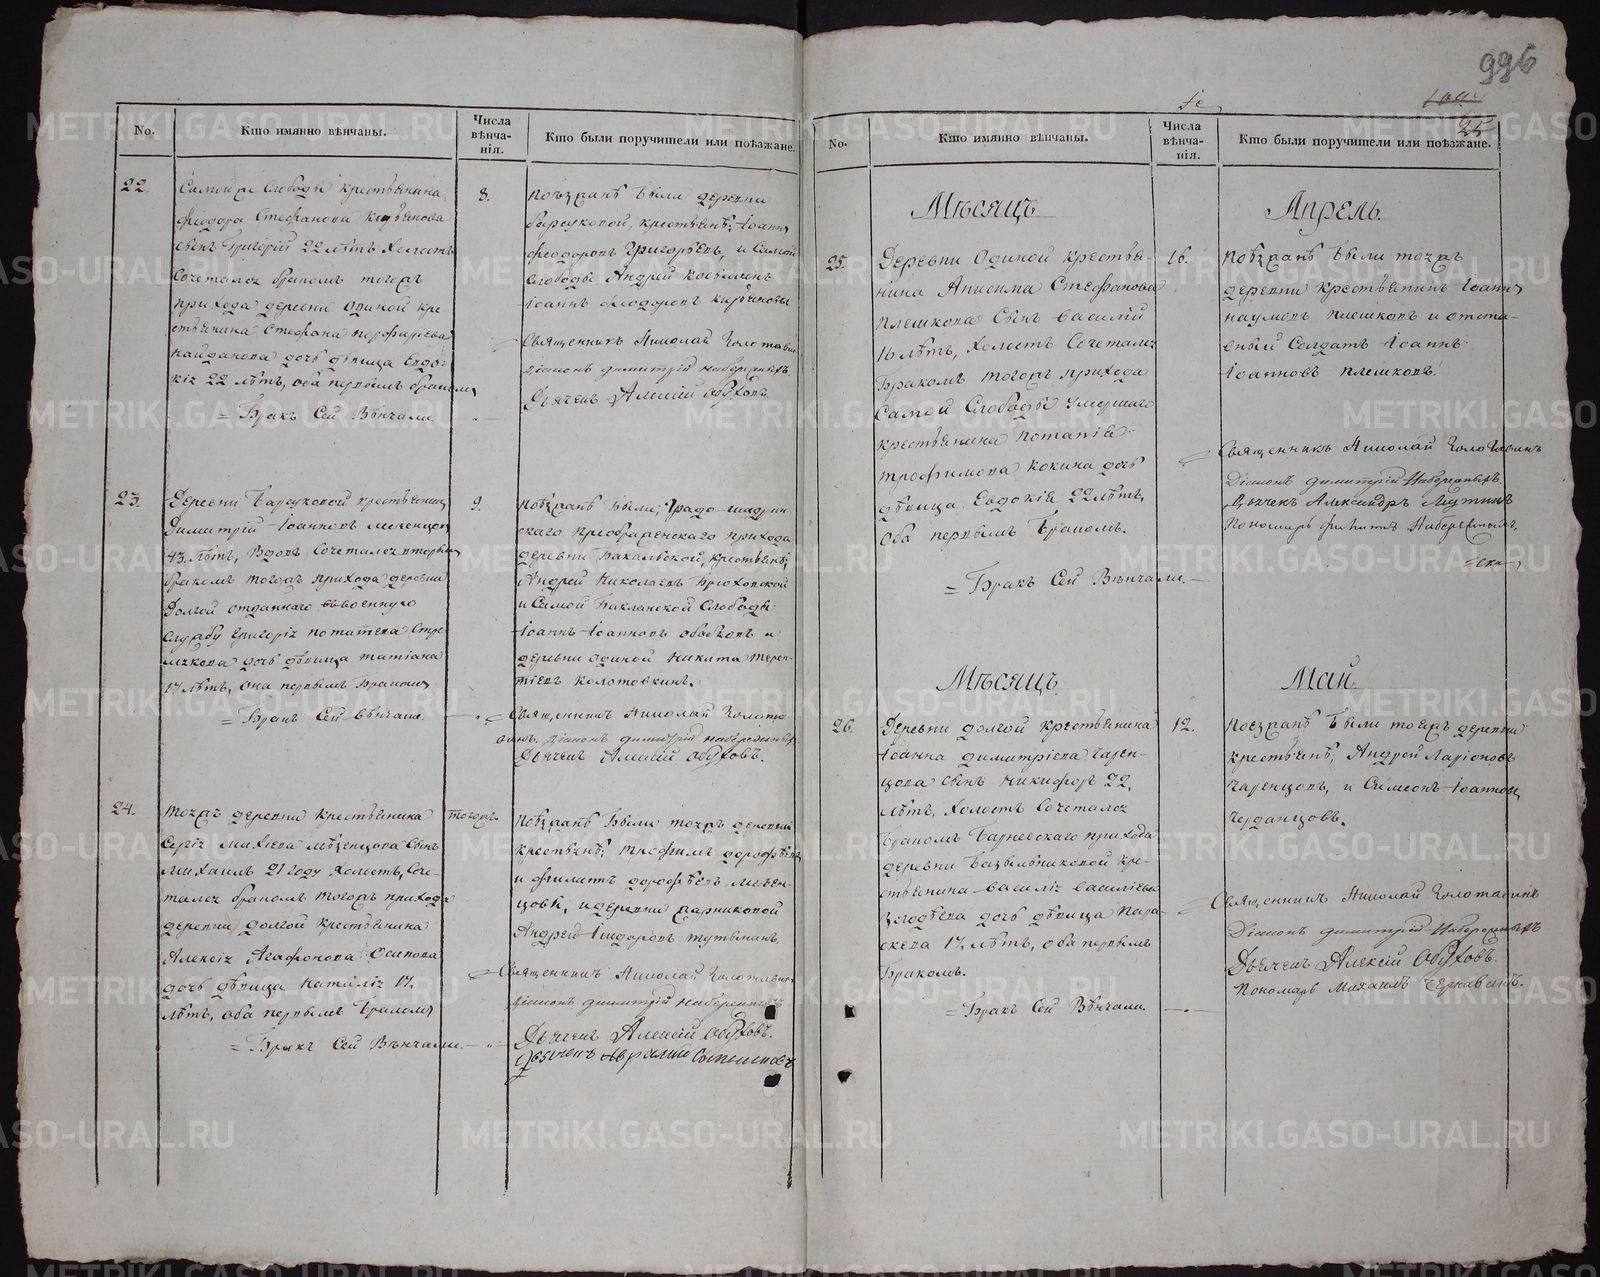 996
25
No.
Кто имянно вѣнчаны.
Числа вѣнча-
нія.
Кто были поручители или поѣзжане.
22.
Самой же Слободы крестьянина
Феодора Стефанова
сынъ Григорій 22 лѣтъ Холостъ
Сочетался бракомъ тогожъ
прихода деревни Одиной кре-
стьянина Стефана Перфиріева
Найданова дочь дѣвица Евдо-
кія 22 лѣтъ, оба первымъ бракомъ
= Бракъ Сей Вѣнчали
8.
Поѣзжанѣ были деревни
крестьянѣ; Іоаннъ
Феодоровъ Григорьевъ, и Самой
Слободы Андрей Косьминъ
Іоаннъ Феодоровъ
Священникъ Николай Золотавинъ
Діаконъ Димитрій Набережныхъ
Дьячекъ Алексій Обуховъ.
23.
Деревни Барсуковой крестьянинъ
Димитрій Іоанновъ
43 лѣтъ, Вдовъ Сочетался вторымъ
бракомъ тогожъ прихода деревни
Долгой отданнаго въ военную
Службу Григорія Потапова Стре-
лкова дочь дѣвица Татіана
17 лѣтъ, она первымъ бракомъ
= Бракъ Сей Вѣнчали.
9.
Поѣзжанѣ были; Градо-шадрин-
скаго Преображенскаго прихода
деревни Бакальской, крестьянѣ;
Андрей Николаевъ
и Самой Бакланской Слободы
Іоаннъ Іоанновъ и
деревни Одиной Никита Терен-
тіевъ Колотовкинъ.
Священникъ Николай Золота-
винъ. Діаконъ Димитрій Набережныхъ
Дьячекъ Алексій Обуховъ.
24.
Тоежъ деревни крестьянина
Сергія Михѣева Мѣзенцова Сынъ
Михаилъ 21 году Холостъ, Соче-
тался бракомъ тогожъ прихода
деревни долгой крестьянина
Алексія Агафонова Осипова
дочь дѣвица Наталія 17.
лѣтъ, оба первымъ бракомъ
= Бракъ Сей Вѣнчали.
Тогожъ
Поѣзжанѣ были тоежъ деревни
крестьянѣ; Трофимъ Дорофѣевъ
и Филатъ Дорофѣевъ Мезен-
цовы, и деревни
Андрей Сидоровъ
Священникъ Николай Золотавинъ
Діаконъ Димитрій Набережныхъ
Дьячекъ Алексій Обуховъ.
No.
Кто имянно вѣнчаны.
Числа вѣнча-
нія.
Кто были поручители или поѣзжане.
Мѣсяцъ
Апрель.
25.
Деревни Одиной крестья-
нина Анисима Стефанова
Плешкова Сынъ Василій
16 лѣтъ, Холостъ Сочетался
Бракомъ тогожъ прихода
Самой Слободы умершаго
крестьянина Потапія
Трофимова Кокина дочь
дѣвица Евдокія 22 лѣтъ,
Оба первымъ Бракомъ.
= Бракъ Сей Вѣнчали.
16.
Поѣзжанѣ были тоежъ
деревни крестьянинъ Іоаннъ
Наумовъ Плешковъ и отста-
вный Солдатъ Іоаннъ
Іоанновъ Плешковъ.
Священникъ Николай Золотавинъ
Діаконъ Димитрій Набережныхъ.
Дьячекъ Александръ
Пономарь Филиппъ Набережныхъ.
Мѣсяцъ
Май
26.
Деревни долгой крестьянина
Іоанна Димитріева Чарен-
цова сынъ Никифоръ 22.
лѣтъ, Холостъ Сочетался
Бракомъ Барневскаго прихода
деревни кре-
стьянина Василія Василіева
дочь дѣвица Пара-
скева 17 лѣтъ, оба первымъ
Бракомъ.
= Бракъ Сей Вѣнчали.
12.
Поезжанѣ были тоежъ деревни
крестьянѣ; Андрей Ларіоновъ
Чаренцовъ, и Симеонъ Іоанновъ
Черданцовъ.
Священникъ Николай Золотавинъ
Діаконъ Димитрій Набережныхъ
Дьячекъ Алексій Обуховъ.
Пономарь Михаилъ Чернавинъ.
METRIKI.GASO-URAL.RU